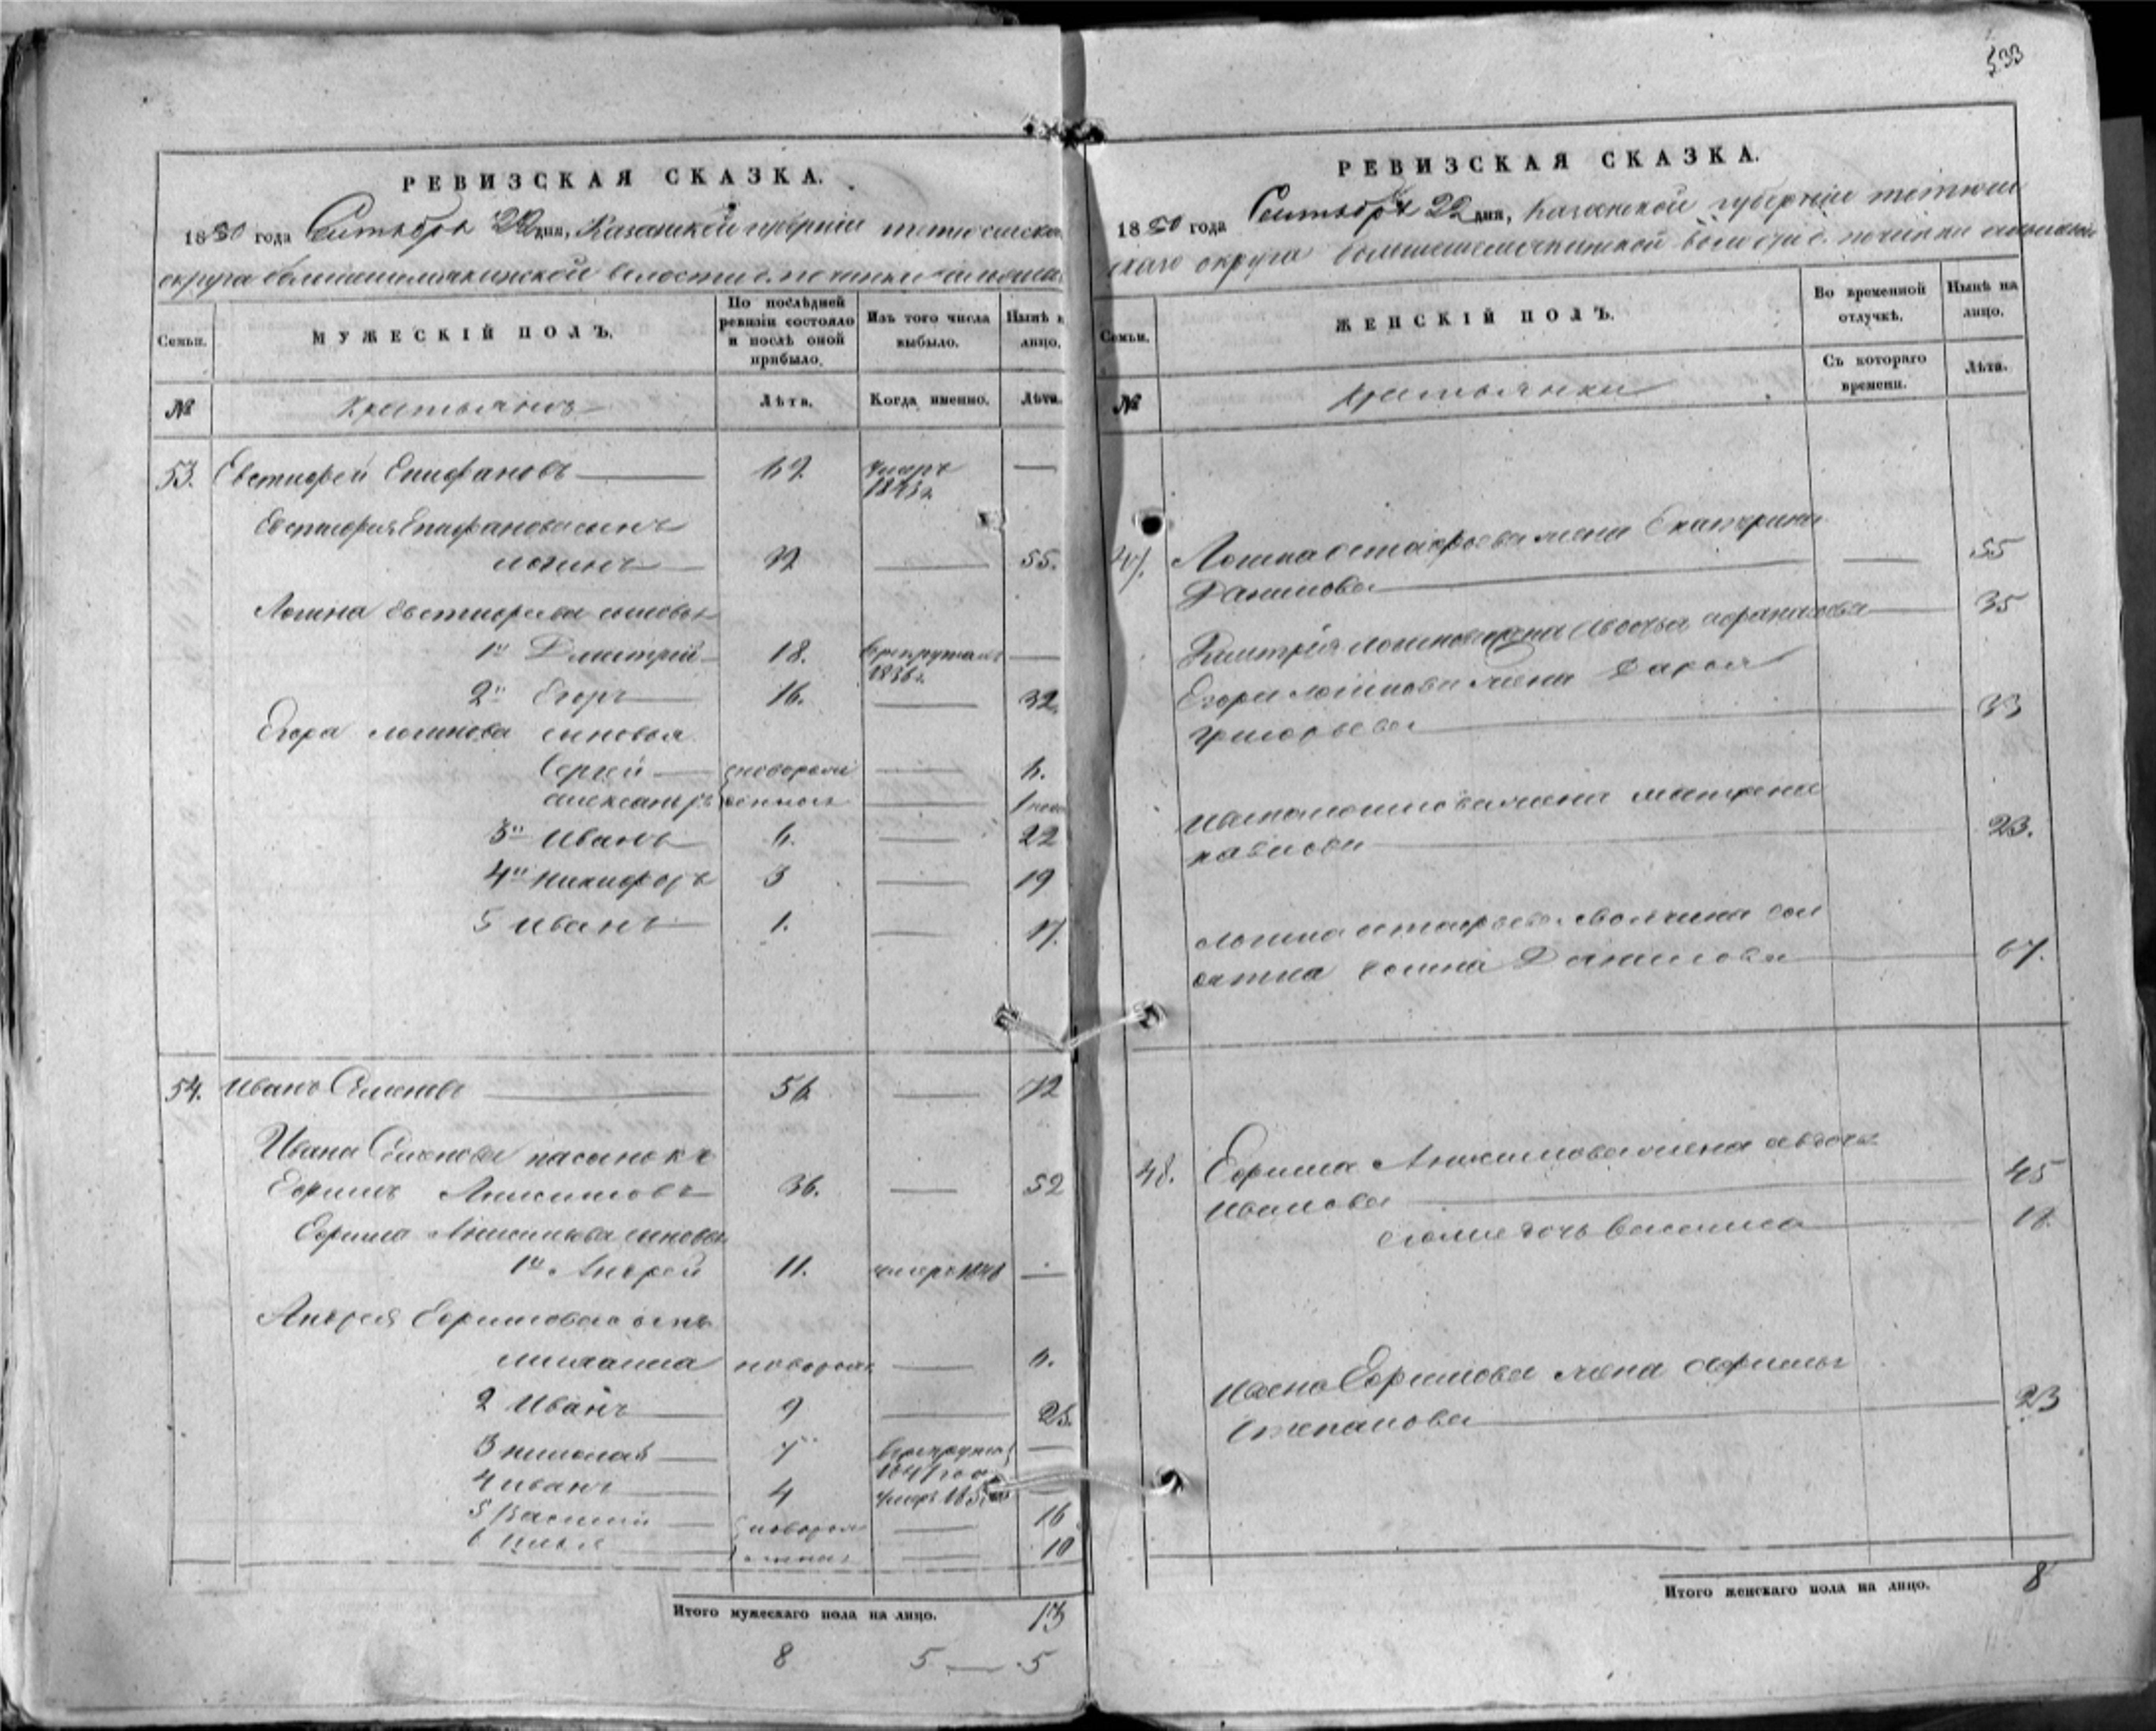 533
РЕВИЗСКАЯ СКАЗКА.
1850 года Сентября 22 дня, Казанской губернiи тетюшска
округа волости д. починки
Семьи.
МУЖЕСКІЙ ПОЛЪ.
По послѣдней ревизіи состояло и послѣ оной прибыло.
Изъ того числа выбыло.
Нынѣ н лицо.
№
Крестьянъ
Лѣта.
Когда именно.
Лѣта.
53. Евстифей Епифановъ — 69 умеръ —
1843 г.
Евстифея Епифанова сынъ
логинъ — 39 — 55.
Логина Евстифеева сыновья
1й Дмитрий — 18. в рекруты —
1836 г.
2й Егоръ — 16. — 32.
Егора логинова сыновья
Сергей — новорож — 6.
александръ денные — 1
3й Иванъ — 6. — 22
4й никифоръ 3 — 19
5 иванъ — 1. — 17.
54. Иванъ Семеновъ — 56 — 72
Ивана Семенова пасынокъ
Ефимъ Анисимовъ — 36. — 52
Ефима Анисимова сыновья
1й Андрей 11. умеръ —
Андрея Ефимова сынъ
новорож — 6.
2 Иванъ — 9 — 25.
3 николай — 7 в рекруты —
года
4 иванъ — 4 умеръ —
5 Василий — новорож — 16
6 илья — денные — 10
Итого мужескаго пола на лицо. 13
8 5 — 5
РЕВИЗСКАЯ СКАЗКА.
1850 года Сентября 22 дня, Казанской губернiи тетюш
скаго округа волости д. починки
Семьи.
ЖЕНСКІЙ ПОЛЪ.
Во временной отлучкѣ.
Нынѣ на лицо.
№
крестьянки
Съ котораго времени.
Лѣта.
47. Логина жена Екатерина
Данилова — — 55
Дмитрия логинова жена Авдотья афанасьева — 35
Егора логинова жена Дарья
григорьева — 33
Ивана логинова жена матрена
— 23.
логина сол
датка Данилова — 67.
48. Ефима Анисимова жена авдотья
иванова — 45
дочь василиса — 18
Ивана Ефимова жена афимья
степанова — 23
Итого женскаго пола на лицо. 8